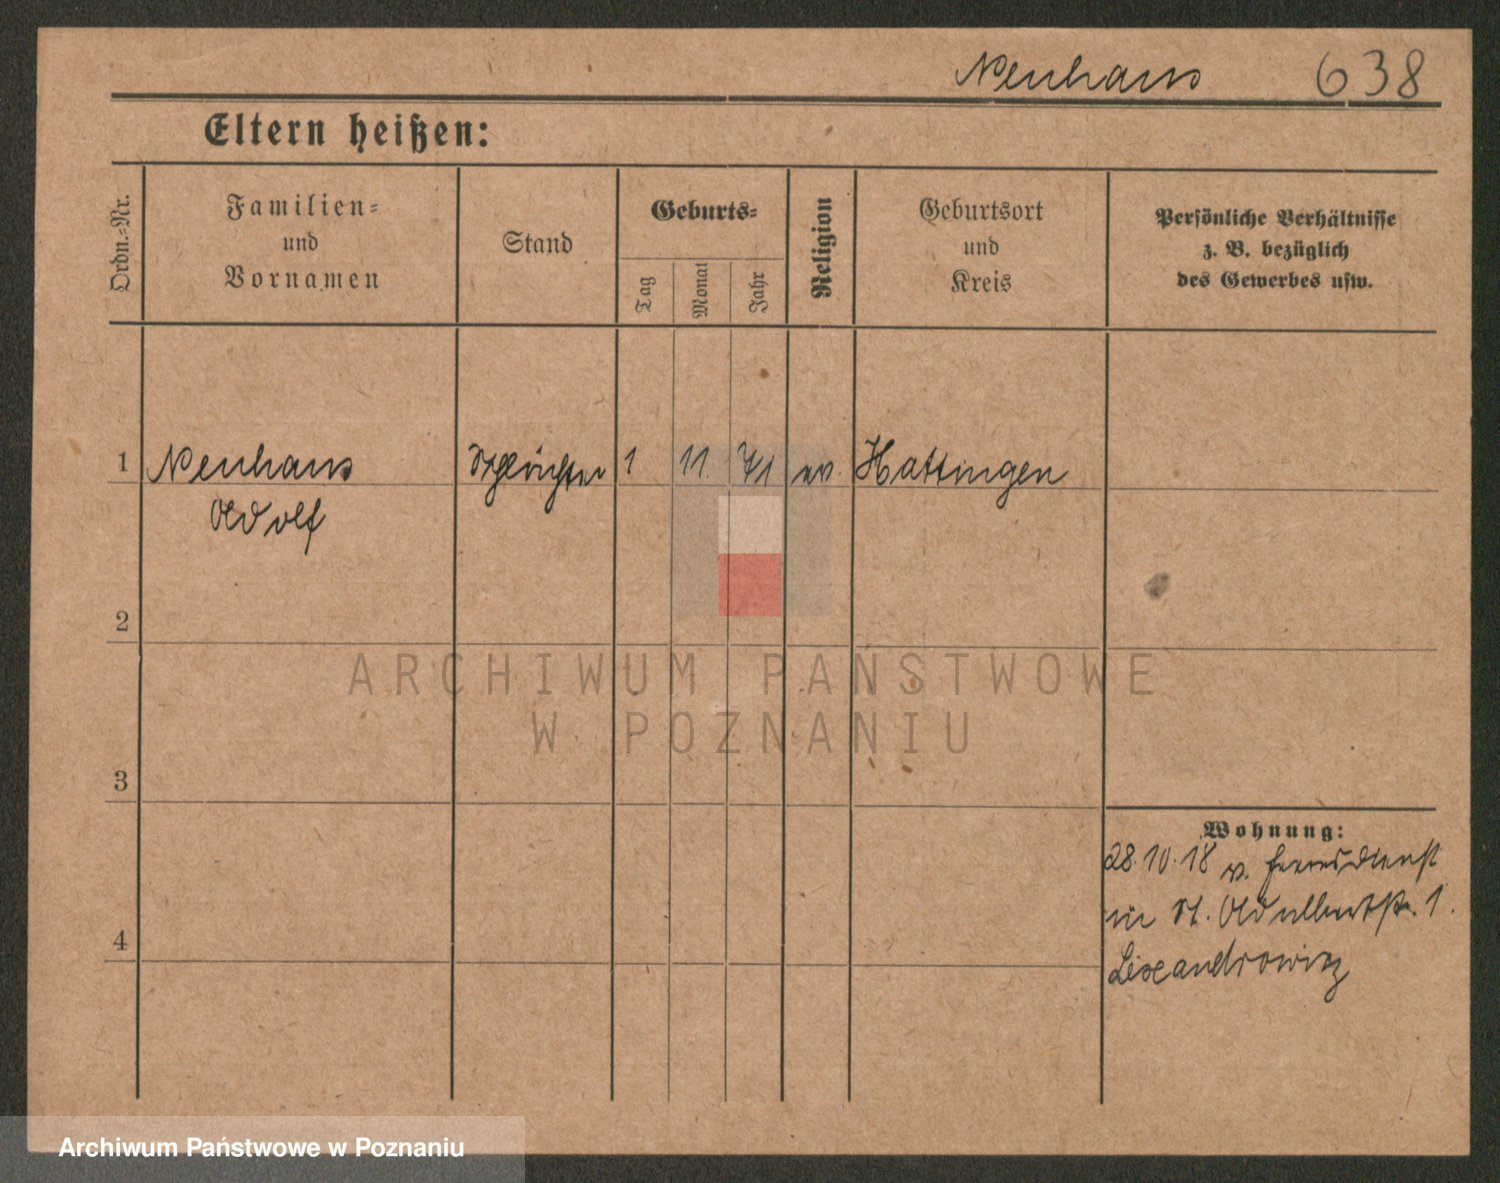 Neuhaus 638
Eltern heißen:
Ordn.-Nr.
Familien-
und
Vornamen
Stand
Geburts-
Tag
Monat
Jahr
Religion
Geburtsort
und
Kreis
Persönliche Verhältnisse
z. B. bezüglich
des Gewerbes usw.
1 Neuhaus 1 11 71 ev. Hattingen
Adolf
2
ARCHIWUM PAŃSTWOWE
W POZNANIU
3
Wohnung:
28.10.18 v. Heeresdienst
in St. 1.
4
Lixandrowicz
Archiwum Państwowe w Poznaniu